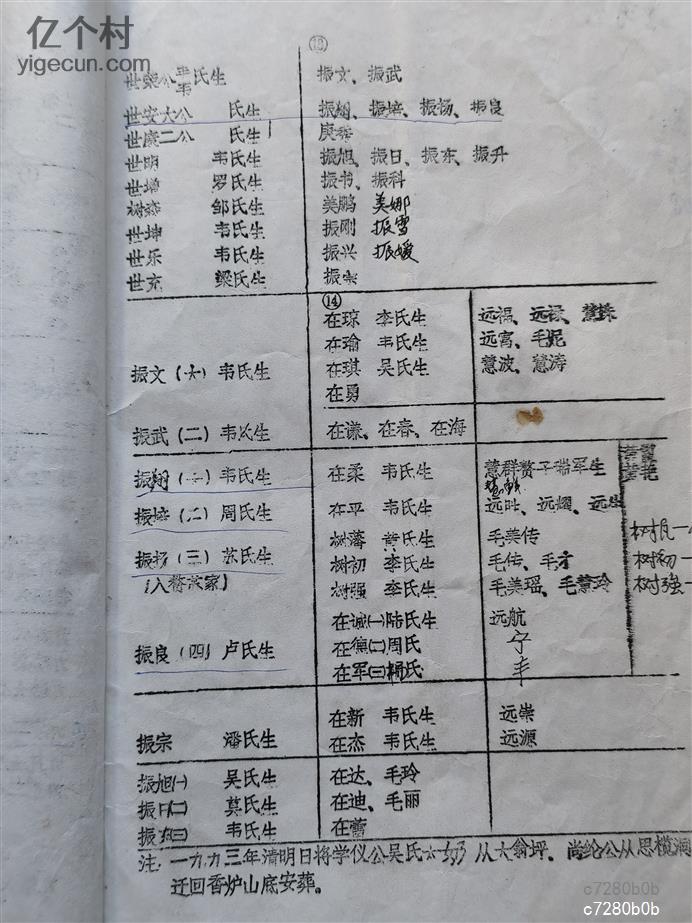 亿个村
yigecun.com
⑬
世荣公 韦韦氏生 振文、振武
世安大公 氏生 振翔、振培、振扬、振良
世康二公 氏生
世明 韦氏生 振旭、振日、振东、振升
世增 罗氏生 振书、振科
邹氏生 美鹏 美娜
世坤 韦氏生 振刚 振雪
世乐 韦氏生 振兴 振媛
世充 梁氏生 振宗
⑭
在琼 李氏生 远福、远禄、慧姝
在瑜 韦氏生 远富、毛妮
振文(大) 韦氏生 在琪 吴氏生 慧波、慧涛
在勇
振武(二) 韦氏生 在谦、在春、在海
振翔(一) 韦氏生 在柔 韦氏生 慧群赘子瑞军生
振培(二) 周氏生 在平 韦氏生 远胜、远耀、远
树藩 黄氏生 毛美传 树民一
振扬(三) 苏氏生 树初 李氏生 毛传、毛才 树初一
(入赘苏家) 树强 李氏生 毛美瑶、毛慧玲 树强一
在诚(一)陆氏生 远航
振良(四) 卢氏生 在德(二)周氏 宁
在军(三)杨氏 丰
在新 韦氏生 远崇
振宗 潘氏生 在杰 韦氏生 远源
振旭(一) 吴氏生 在达、毛玲
振日(二) 莫氏生 在迪、毛丽
振东(三) 韦氏生 在蕾
注:一九九三年清明日将学仪公吴氏大奶从大翁坪、尚纶公从思榄涧
迁回香炉山底安葬。
c7280b0b
c7280b0b